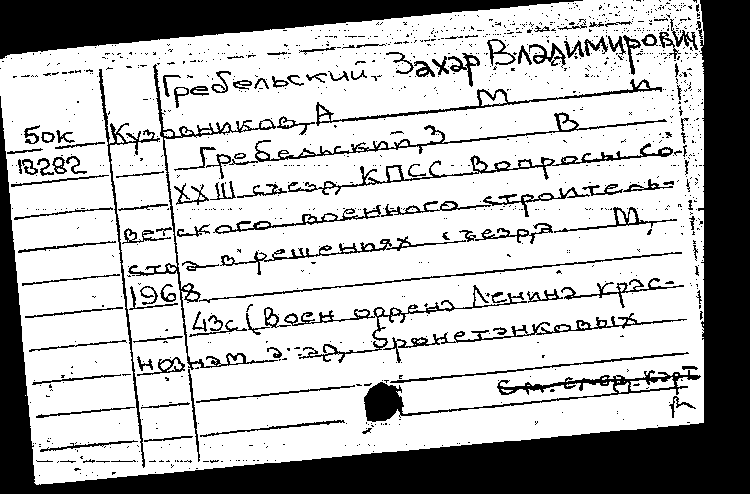 Гребельский, Захар Владимирович
Кузовников, А М и
50к Гребельский, З В
18282 XXIII съезд КПСС Вопросы со-
ветского военного строитель-
ства в решениях съезда. М,
1968
43с (Воен ордена Ленина крас-
нознам. акад. бронетанковых
См. след. карт